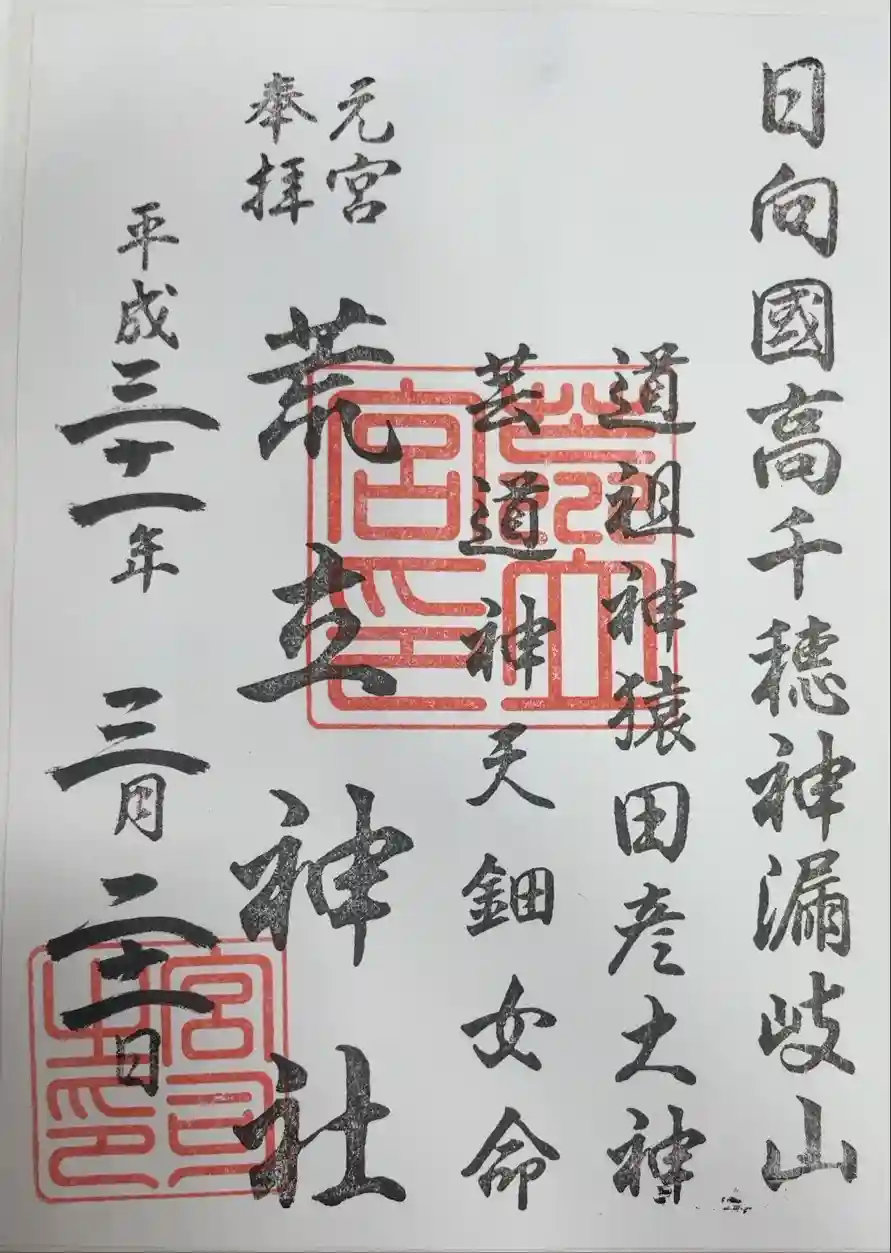 日向國高千穂神漏岐山
道祖神猿田彦大神
芸道神天鈿女命
元宮
奉拝
荒立神社
平成三十一年 三月二十一日
荒立宮印
宮司之印